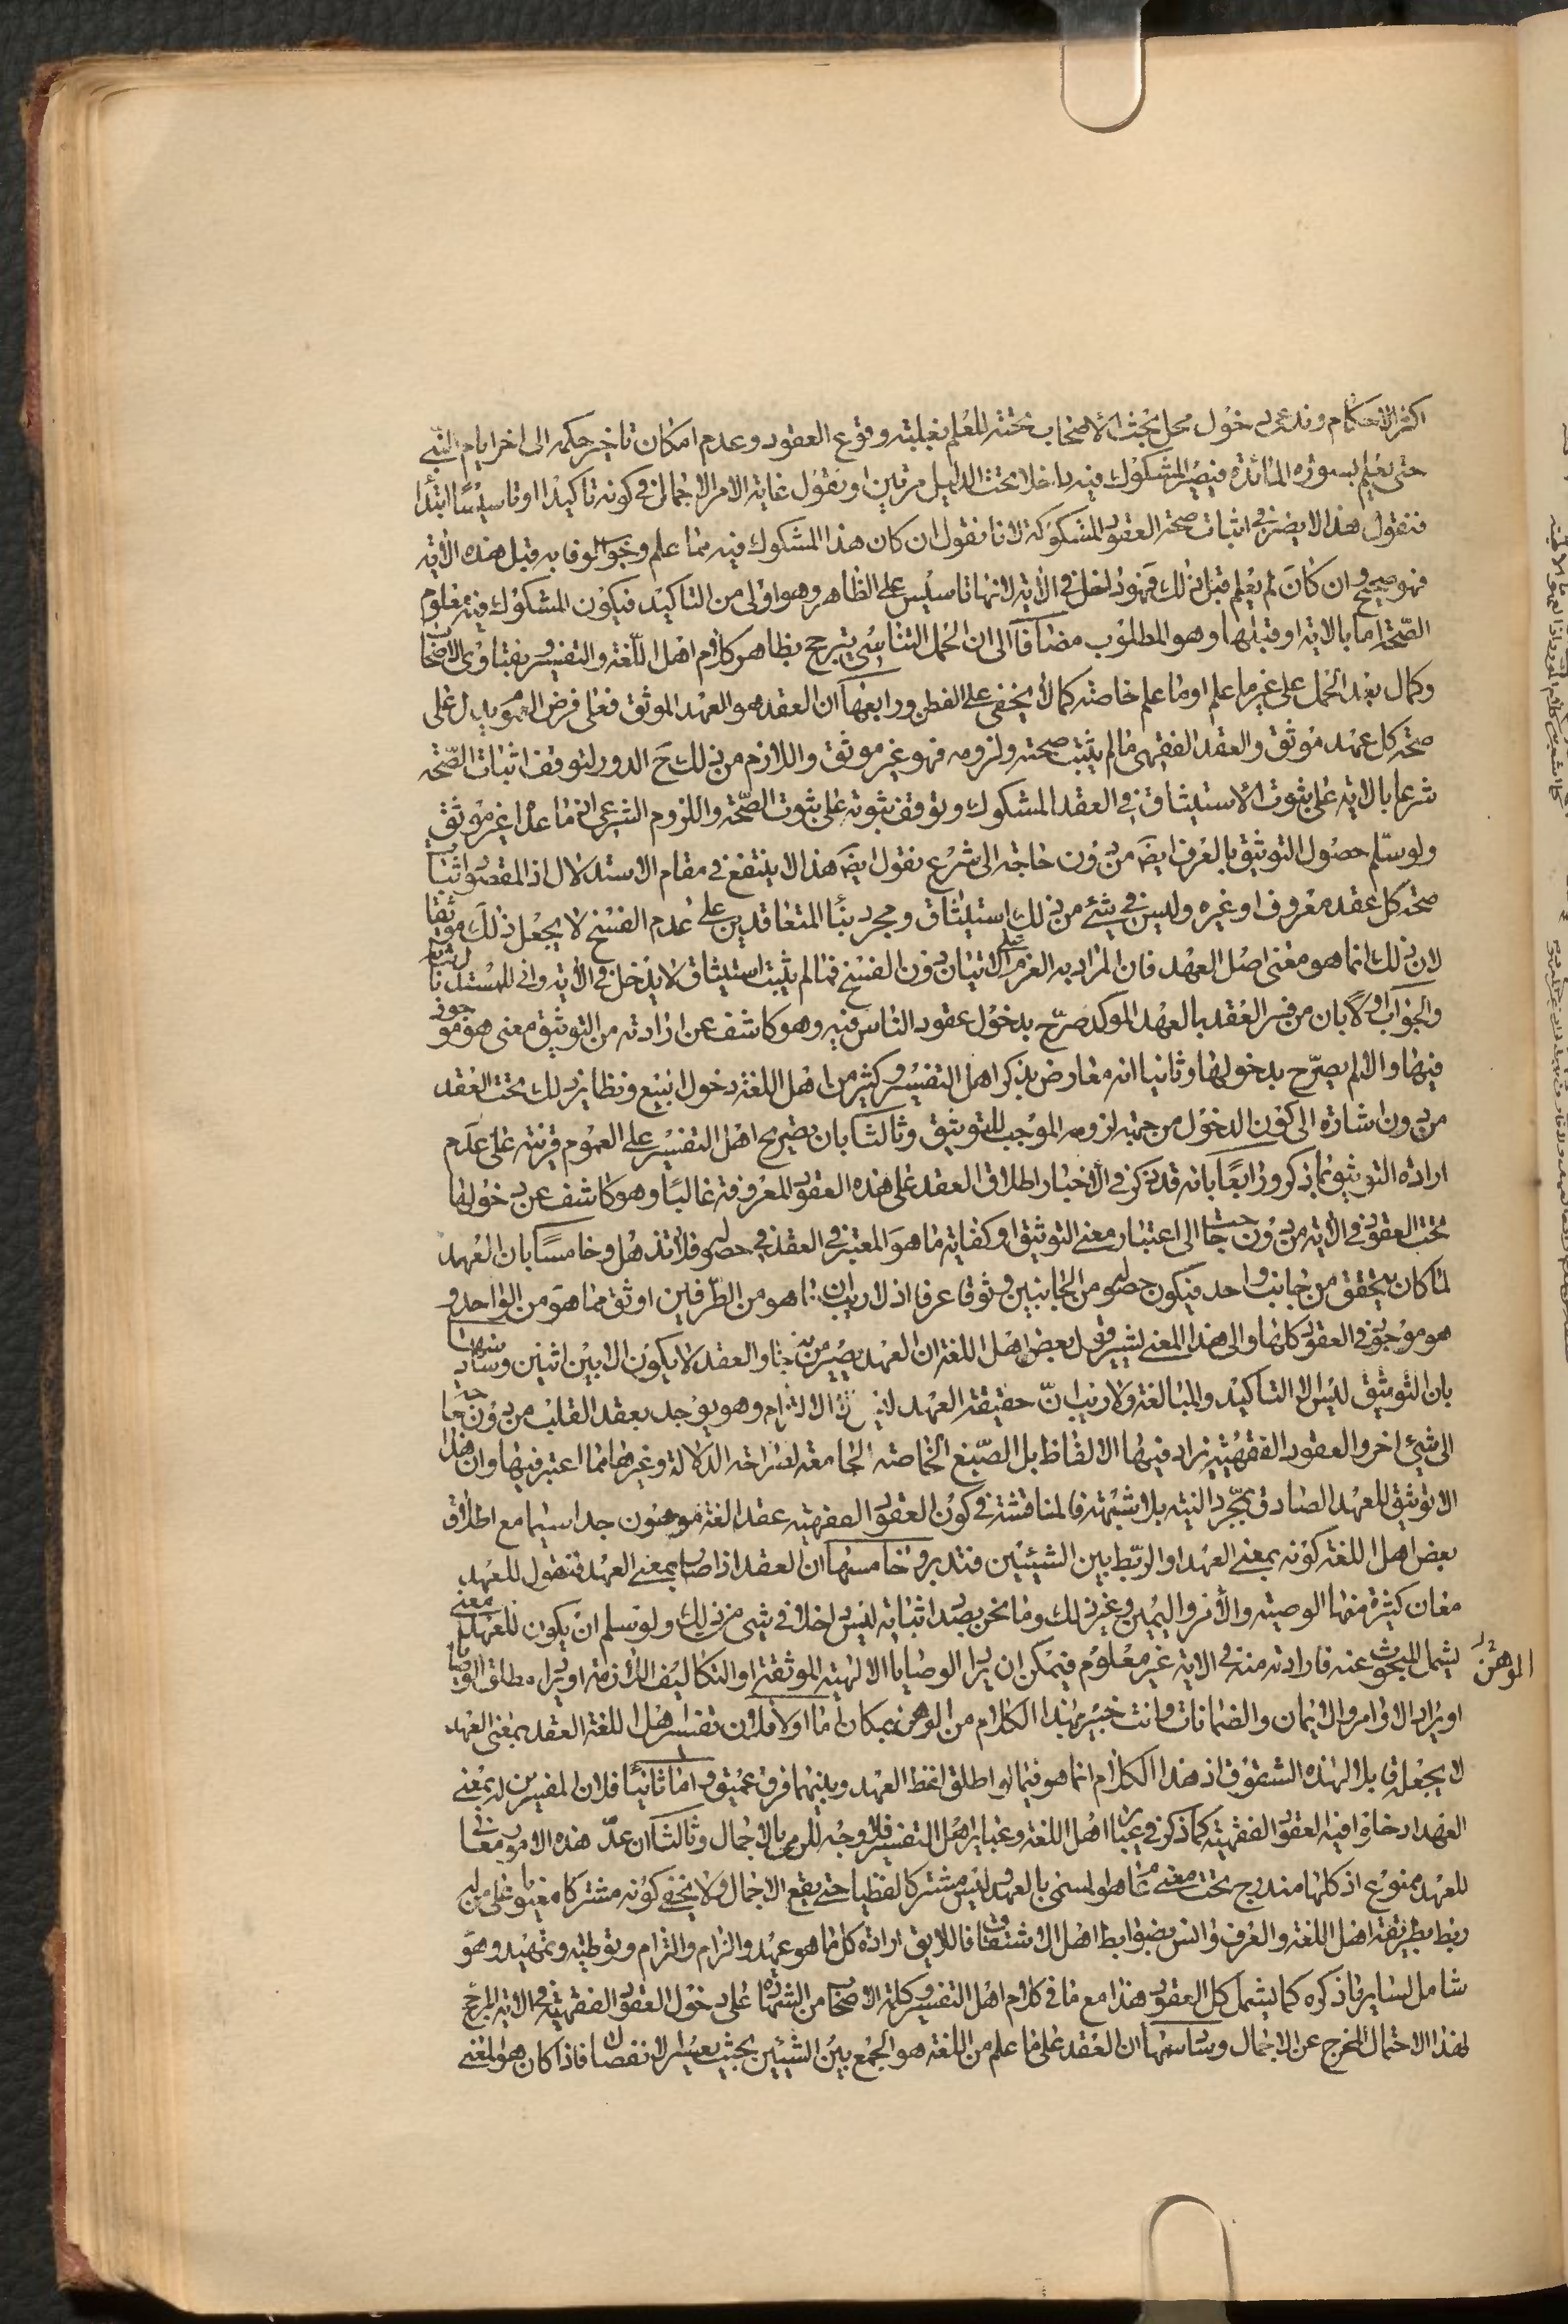 اكثر الاحكام وندعى دخول محل بحث الأصحاب تحته للعلم بغلبته وقوع العقود وعدم امكان تاخير حكمه الى اخر ايام النبي
حتى يعلم بسورة المائدة فيصير المشكوك فيه داخلا تحت الدليل مرتين او نقول غاية الامر الاجمال في كونه تاكيدا او تاسيسًا ابتدا
فنقول هذا لا يضر في اثبات صحة العقود المشكوكة لانا نقول ان كان هذا المشكوك فيه مما علم وجوب الوفا به قبل هذه الآية
فهو صحيح وان كان لم يعلم قبل ذلك فهو داخل في الآية لانها تاسيس على الظاهر وهو اولى من التاكيد فيكون المشكوك فيه معلوم
الصّحة اما بالاية او قبلها وهو المطلوب مضافا الى ان الحمل التاسيسي يترجح بظاهر كلام اهل اللّغة والتفسير وبفتاوى الاصحاب
وكمال بعد الحمل على غير ما علم او ما علم خاصة كما لا يخفى على الفطن ورابعها ان العقد هو العهد الموثق فعلى فرض العموم يدل على
صحة كل عهد موثق والعقد الفقهى ما لم يثبت صحته ولزومه فهو غير موثق واللازم من ذلك ح الدور لتوقف اثبات الصّحة
شرعا بالاية على ثبوت الاستيثاق في العقد المشكوك وتوقف ثبوته على ثبوت الصّحة واللزوم الشرعى اذ ما عدا غير موثق
ولو سلّم حصول التوثيق بالعرف ايضَ من دون حاجة الى شرع نقول ايضَ هذا لا ينفع في مقام الاستدلال اذ المقصود اثبات
صحة كل عقد معروف او غيره وليس في شئ من ذلك استيثاق ومجرد بنا المتعاقدين على عدم الفسخ لا يجعل ذلك موثقا
لان ذلك انما هو معنى اصل العهد فان المراد به العزم على الاتيان دون الفسخ فما لم يثبت استيثاق لا يدخل في الآية وانى للمستدل باثباته
والجواب اولاً بان من فسر العقد بالعهد الموكد صرّح بدخول عقود الناس فيه وهو كاشف عن ارادته من التوثيق معنى هو موجود
فيها والا لم يصرّح بدخولها وثانيا انه معارض بذكر اهل التفسير وكثير من اهل اللغة دخول البيع ونظاير ذلك تحت العقد
من دون اشارة الى كون الدخول من جهة لزومه الموجب للتوثيق وثالثا بان تصريح اهل التفسير على العموم قرينة على عدم
ارادة التوثيق بما ذكر ورابعًا بانه قد ذكر في الأخبار اطلاق العقد على هذه العقود المعروفة غالبًا وهو كاشف عن دخولها
تحت العقود في الآية من دون حاجة الى اعتبار معنى التوثيق او كفاية ما هو المعتبر في العقد في حصوله فلا تذهل وخامسًا بان العهد
لما كان يتحقق من جانب واحد فيكون حصوله من الجانبين وثوقا عرفا اذ لا ريب ان ما هو من الطّرفين اوثق مما هو من الواحد و
هو موجود في العقود كلها والى هذا المعنى يشير قول بعض اهل اللغة ان العهد يصير من جانب والعقد لا يكون الا بين اثنين وسادسها
بان التوثيق ليس الا التاكيد والمبالغة ولا ريب انّ حقيقة العهد ليس الا الالتزام وهو يوجد بعقد القلب من دون حاجة
الى شئ اخر والعقود الفقهية زاد فيها الالفاظ بل الصّيغ الخاصة الجامعة لصراحة الدلالة وغيرها مما اعتبر فيها وان هذا
الا توثيق للعهد الصادق بمجّرد النية بلا شبهة فالمناقشة في كون العقود الفقهية عقد الغة موهون جدا سيما مع اطلاق
بعض اهل اللغة كونه بمعنى العهد او الربّط بين الشيئين فتدبر وخامسها ان العقد اذا صار بمعنى العهد فنقول للعهد
معان كثيرة منها الوصية والأمر واليمين وغير ذلك وما نحن بصدد اثباته ليس داخلا في شئ من ذلك ولو سلم ان يكون للعهد معنى
يشمل المبحوث عنه فارادته منه في الاية غير معلوم فيمكن ان يراد الوصايا الالهية الموثقة او التكاليف اللازمة او يراد مطلق الوصايا
او يراد الاوامر والايمان والضمانات وانت خبير بهذا الكلام من الوهن بمكان اما اولا فلان تفسير اهل اللغة العقد بمعنى العهد
لا يجعله قابلا لهذه الشقوق اذ هذا الكلام انما هو فيما لو اطلق لفظ العهد وبينهما فرق عميق واما ثانيًا فلان المفسرين له بمعنى
العهد ادخلوا فيه العقود الفقهية كما ذكر في عبارة اهل اللغة وعباير اهل التفسير فلا وجه للرمى بالاجمال وثالثا ان عدّ هذه الامور معان
للعهد ممنوع اذ كلها مندرج تحت معنى عام هو المسمى بالعهد وليس مشتركا لفظيا حتى يقع الاجمال ولا يخفى كونه مشتركا معنويا على من له
ربط بطريقة اهل اللغة والعرف وانس بضوابط اهل الاشتقاق فاللايق ارادة كل ما هو عهد والزام والتزام وتوطية وتمهيد وهو
شامل لساير ما ذكره كما يشمل كل العقود هذا مع ما في كلام اهل التفسير وكافة الاصحاب من الشهادة على دخول العقود الفقهية في الاية المرجح
لهذا الاحتمال المخرج عن الاجمال وسادسها ان العقد على ما علم من اللغة هو الجمع بين الشيئين بحيث يعسر الانفصال فاذا كان هو المعنى